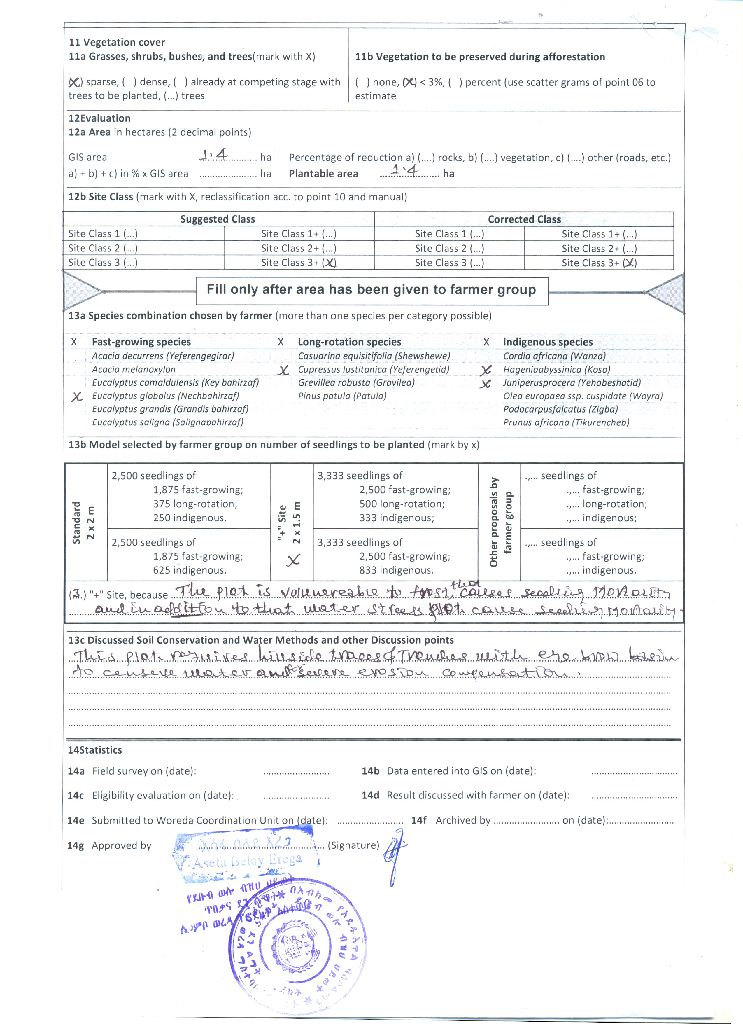 11 Vegetation cover
11a Grasses, shrubs, bushes, and trees(mark with X)
(X) sparse, ( ) dense, ( ) already at competing stage with
trees to be planted, (...) trees
11b Vegetation to be preserved during afforestation
( ) none, (X) < 3%, ( ) percent (use scatter grams of point 06 to
estimate
12Evaluation
12a Area in hectares (2 decimal points)
GIS area 1.4 ha Percentage of reduction a) (....) rocks, b) (....) vegetation, c) (....) other (roads, etc.)
a) + b) + c) in % x GIS area .................. ha Plantable area 1.4 ha
12b Site Class (mark with X, reclassification acc. to point 10 and manual)
Suggested Class Corrected Class
Site Class 1 (...) Site Class 1+ (...) Site Class 1 (...) Site Class 1+ (...)
Site Class 2 (...) Site Class 2+ (...) Site Class 2 (...) Site Class 2+ (...)
Site Class 3 (...) Site Class 3+ (X) Site Class 3 (...) Site Class 3+ (X)
Fill only after area has been given to farmer group
13a Species combination chosen by farmer (more than one species per category possible)
X Fast-growing species
Acacia decurrens (Yeferengegirar)
Acacia melanoxylon
Eucalyptus camaldulensis (Key bahirzaf)
X Eucalyptus globolus (Nechbahirzaf)
Eucalyptus grandis (Grandis bahirzaf)
Eucalyptus saligna (Salignabahirzaf)
X Long-rotation species
Casuarina equisitifolia (Shewshewe)
X Cupressus lustitanica (Yeferengetid)
Grevillea robusta (Gravilea)
Pinus patula (Patula)
X Indigenous species
Cordia africana (Wanza)
X Hageniaabyssinica (Koso)
X Juniperusprocera (Yehabeshatid)
Olea europaea ssp. cuspidate (Wayra)
Podocarpusfalcatus (Zigba)
Prunus africana (Tikurencheb)
13b Model selected by farmer group on number of seedlings to be planted (mark by x)
Standard
2 x 2 m
2,500 seedlings of
1,875 fast-growing;
375 long-rotation,
250 indigenous.
2,500 seedlings of
1,875 fast-growing;
625 indigenous.
"+" Site
2 x 1.5 m
X
3,333 seedlings of
2,500 fast-growing;
500 long-rotation;
333 indigenous;
3,333 seedlings of
2,500 fast-growing;
833 indigenous.
Other proposals by
farmer group
.,... seedlings of
.,... fast-growing;
.,... long-rotation;
.,... indigenous;
.,... seedlings of
.,... fast-growing;
.,... indigenous.
(3.) "+" Site, because The plot is volunereable to frost, that causes seedling Mortality
and in addition to that water stress cause seedling Mortality
13c Discussed Soil Conservation and Water Methods and other Discussion points
This plot requires hillside Trenches with
to conserve water and severe erosion compensation.
14Statistics
14a Field survey on (date): ......................
14b Data entered into GIS on (date): ......................
14c Eligibility evaluation on (date): ......................
14d Result discussed with farmer on (date): ......................
14e Submitted to Woreda Coordination Unit on (date): ......................
14f Archived by ...................... on (date):......................
14g Approved by ...................... (Signature)
Belay Erega